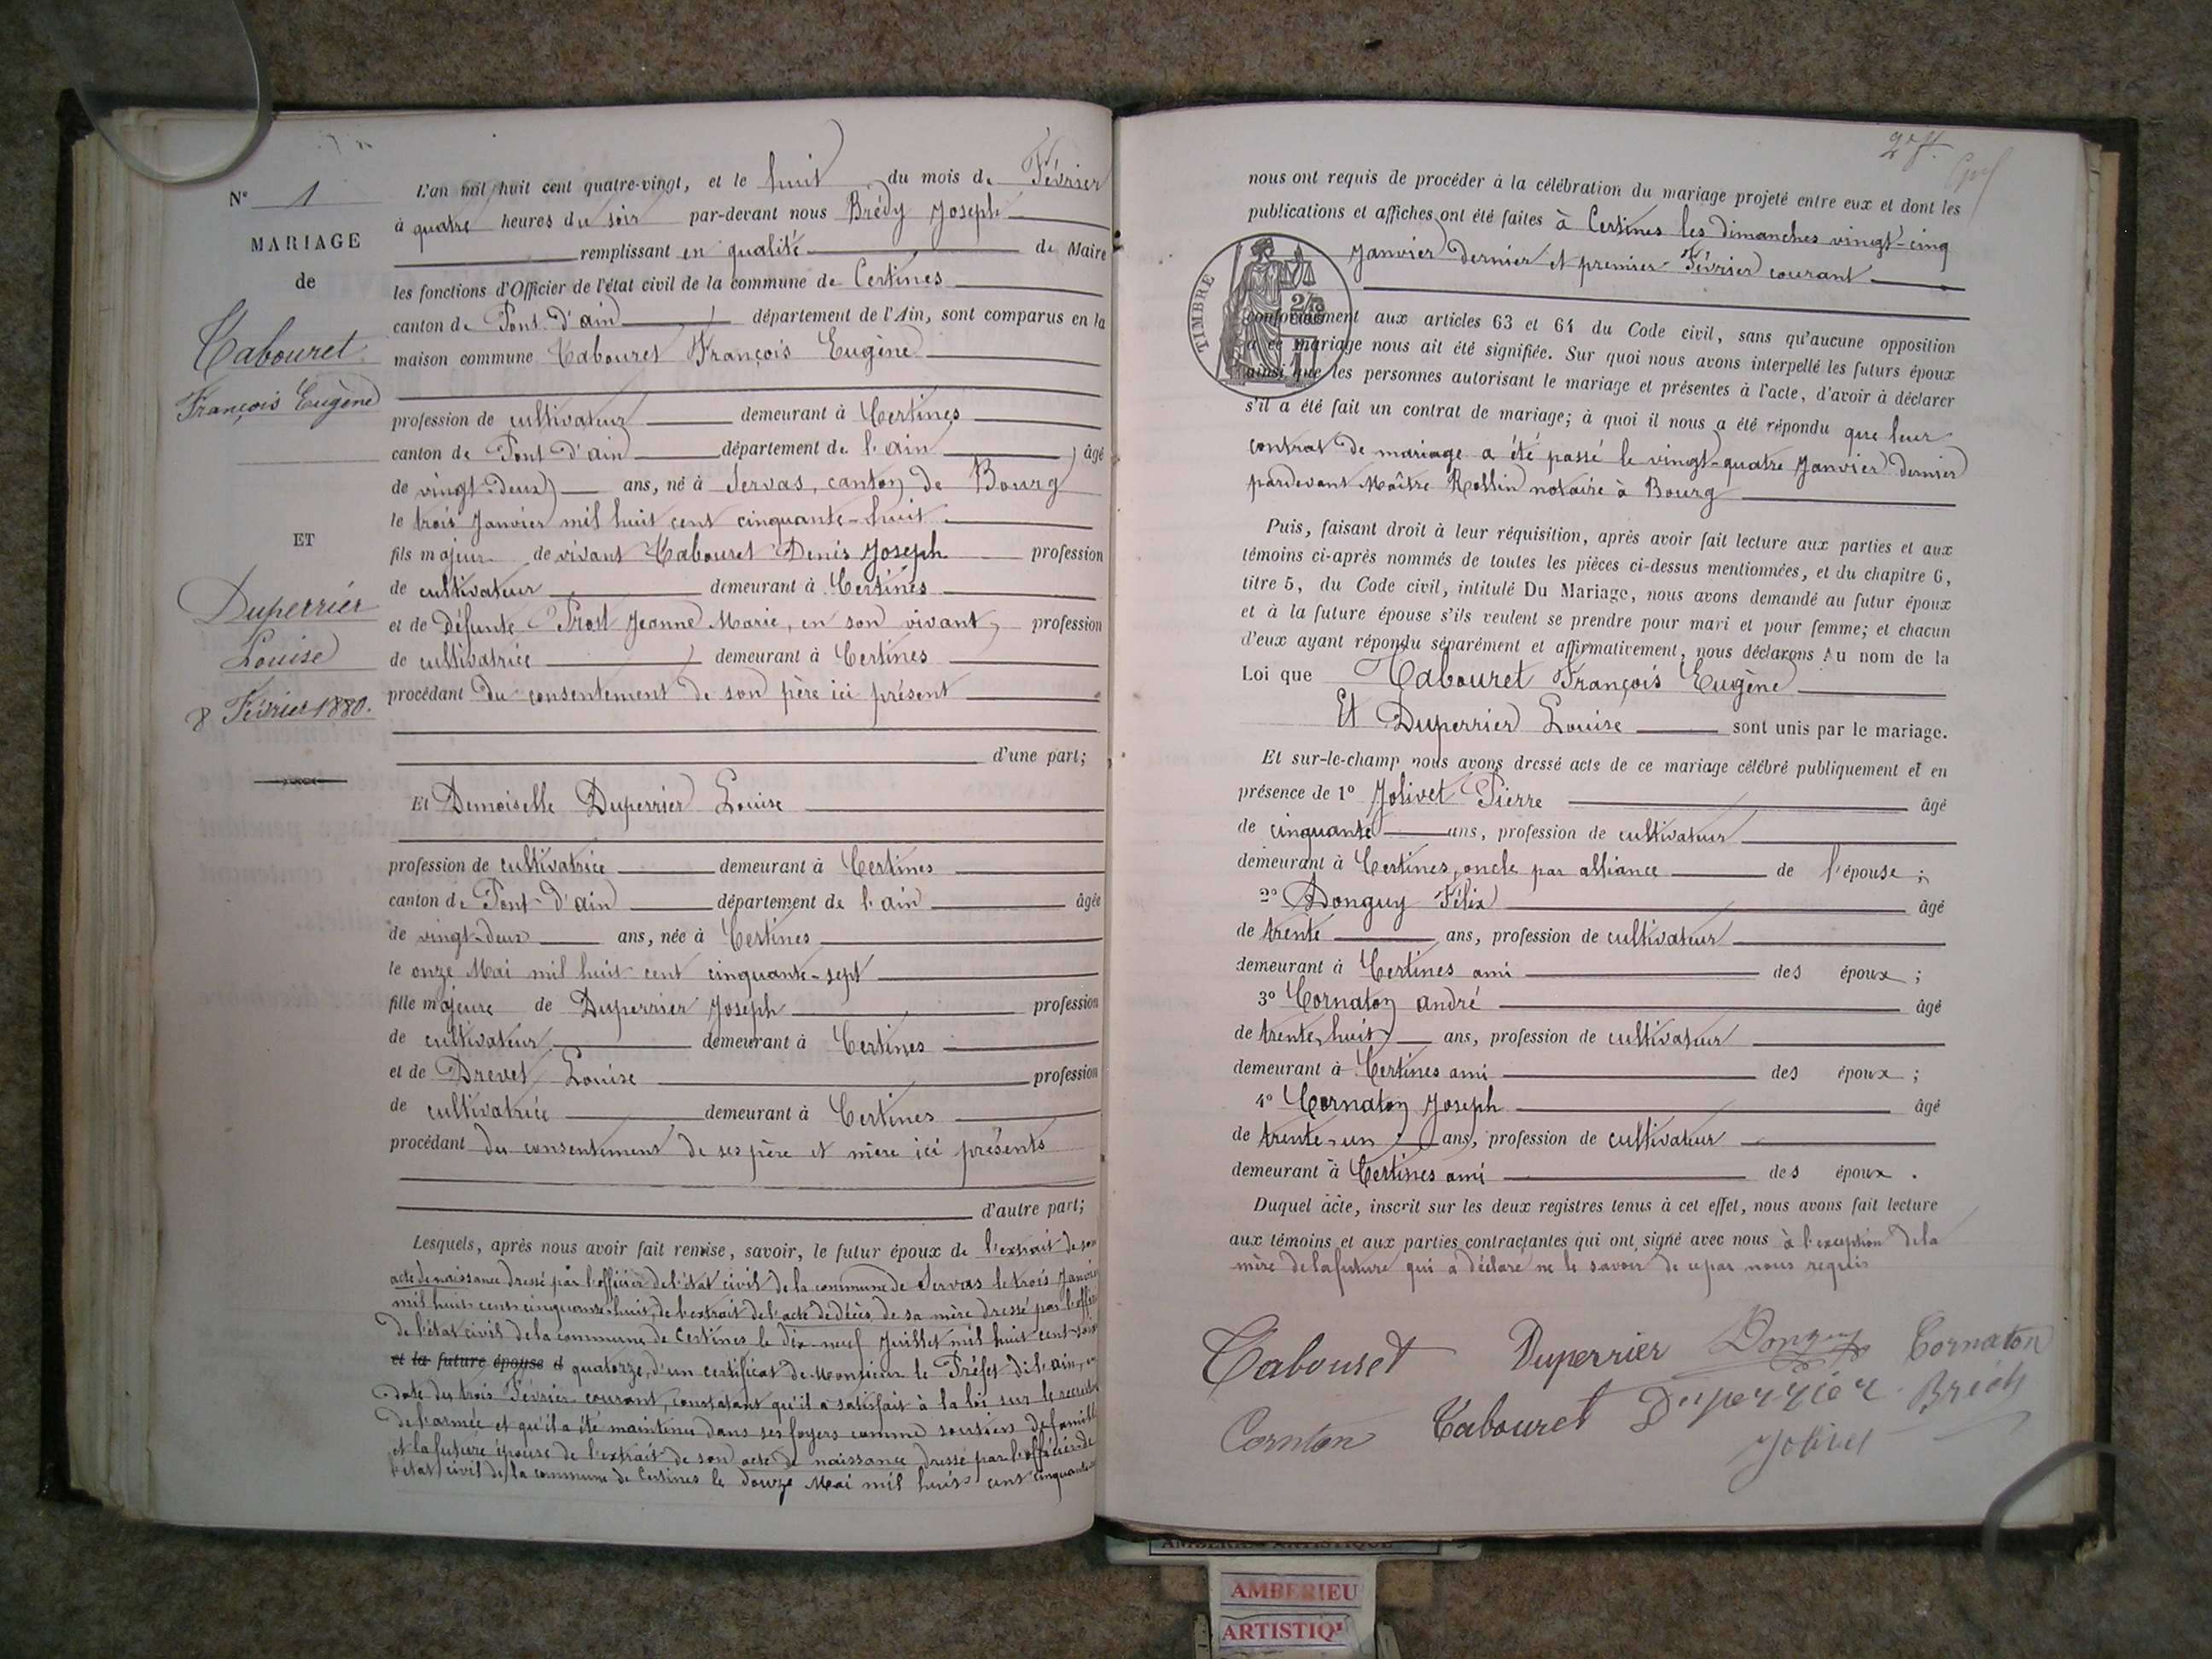 N° 1
MARIAGE
de
Tabouret
François Eugène
ET
Duperrier
Louise
8 Février 1880.
L'an mil huit cent quatre-vingt, et le huit du mois de Février
à quatre heures du soir par-devant nous Brédy Joseph
remplissant en qualité de Maire
les fonctions d'Officier de l'état civil de la commune de Certines
canton de Pont-d'ain département de l'Ain, sont comparus en la
maison commune Tabouret François Eugène
profession de cultivateur demeurant à Certines
canton de Pont d'ain département de l'ain âgé
de vingt-deux ans, né à Servas, canton de Bourg
le trois Janvier mil huit cent cinquante-huit
fils majeur de vivant Tabouret Denis Joseph profession
de cultivateur demeurant à Certines
et de défunte Prost Jeanne Marie, en son vivant, profession
de cultivatrice demeurant à Certines
procédant du consentement de son père ici présent
d'une part;
Et Demoiselle Duperrier Louise
profession de cultivatrice demeurant à Certines
canton de Pont-d'ain département de l'ain âgée
de vingt-deux ans, née à Certines
le onze Mai mil huit cent cinquante-sept
fille majeure de Duperrier Joseph profession
de cultivateur demeurant à Certines
et de Drevet Louise profession
de cultivatrice demeurant à Certines
procédant du consentement de ses père et mère ici présents
d'autre part;
Lesquels, après nous avoir fait remise, savoir, le futur époux de l'extrait de son
acte de naissance dressé par l'officier de l'état civil de la commune de Servas le trois Janvier
mil huit cent cinquante-huit, de l'extrait de l'acte de décès de sa mère dressé par l'officier
de l'état civil de la commune de Certines le dix-neuf Juillet mil huit cent
et la future épouse d quatorze, d'un certificat de Monsieur le Préfet de l'ain, en
date du trois Février courant, constatant qu'il a satisfait à la loi sur le
de l'armée et qu'il a été maintenu dans ses foyers comme soutien de famille
et la future épouse de l'extrait de son acte de naissance dressé par l'officier de
l'état civil de la commune de Certines le douze Mai mil huit cent cinquante
nous ont requis de procéder à la célébration du mariage projeté entre eux et dont les
publications et affiches ont été faites à Certines les dimanches vingt-cinq
Janvier dernier et premier Février courant
TIMBRE
conformément aux articles 63 et 64 du Code civil, sans qu'aucune opposition
à ce mariage nous ait été signifiée. Sur quoi nous avons interpellé les futurs époux
ainsi que les personnes autorisant le mariage et présentes à l'acte, d'avoir à déclarer
s'il a été fait un contrat de mariage; à quoi il nous a été répondu que leur
contrat de mariage a été passé le vingt-quatre Janvier dernier
pardevant Maître Rollin notaire à Bourg
Puis, faisant droit à leur réquisition, après avoir fait lecture aux parties et aux
témoins ci-après nommés de toutes les pièces ci-dessus mentionnées, et du chapitre 6,
titre 5, du Code civil, intitulé Du Mariage, nous avons demandé au futur époux
et à la future épouse s'ils veulent se prendre pour mari et pour femme; et chacun
d'eux ayant répondu séparément et affirmativement, nous déclarons Au nom de la
Loi que Tabouret François Eugène
Et Duperrier Louise sont unis par le mariage.
Et sur-le-champ nous avons dressé acte de ce mariage célébré publiquement et en
présence de 1° Jolivet Pierre âgé
de cinquante ans, profession de cultivateur
demeurant à Certines, oncle par alliance de l'épouse;
2° Donguy Félix âgé
de trente ans, profession de cultivateur
demeurant à Certines ami des époux;
3° Cornaton andré âgé
de trente-huit ans, profession de cultivateur
demeurant à Certines ami des époux;
4° Cornaton Joseph âgé
de trente-un ans, profession de cultivateur
demeurant à Certines ami des époux.
Duquel acte, inscrit sur les deux registres tenus à cet effet, nous avons fait lecture
aux témoins et aux parties contractantes qui ont signé avec nous à l'exception de la
mère de la future qui a déclaré ne le savoir de ce par nous requis
Tabouret Duperrier Donguy Cornaton
Cornton Tabouret Duperrier Brédy
Jolivet
AMBERIEU ARTISTIQUE
AMBERIEU
ARTISTIQ